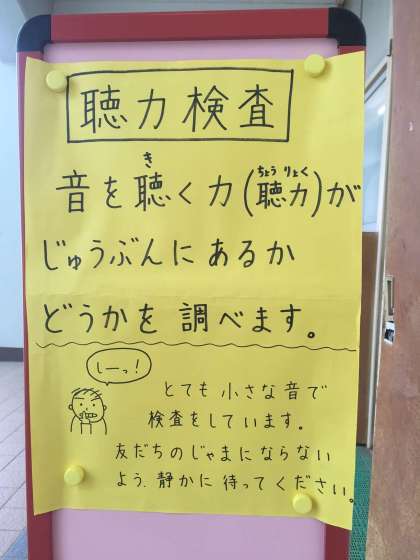 聴力検査
音を聴く力(聴力)が
き
ちょうりょく
じゅうぶんにあるか
どうかを調べます。
しーっ!
とても小さな音で
検査をしています。
友だちのじゃまにならない
よう、静かに待ってください。